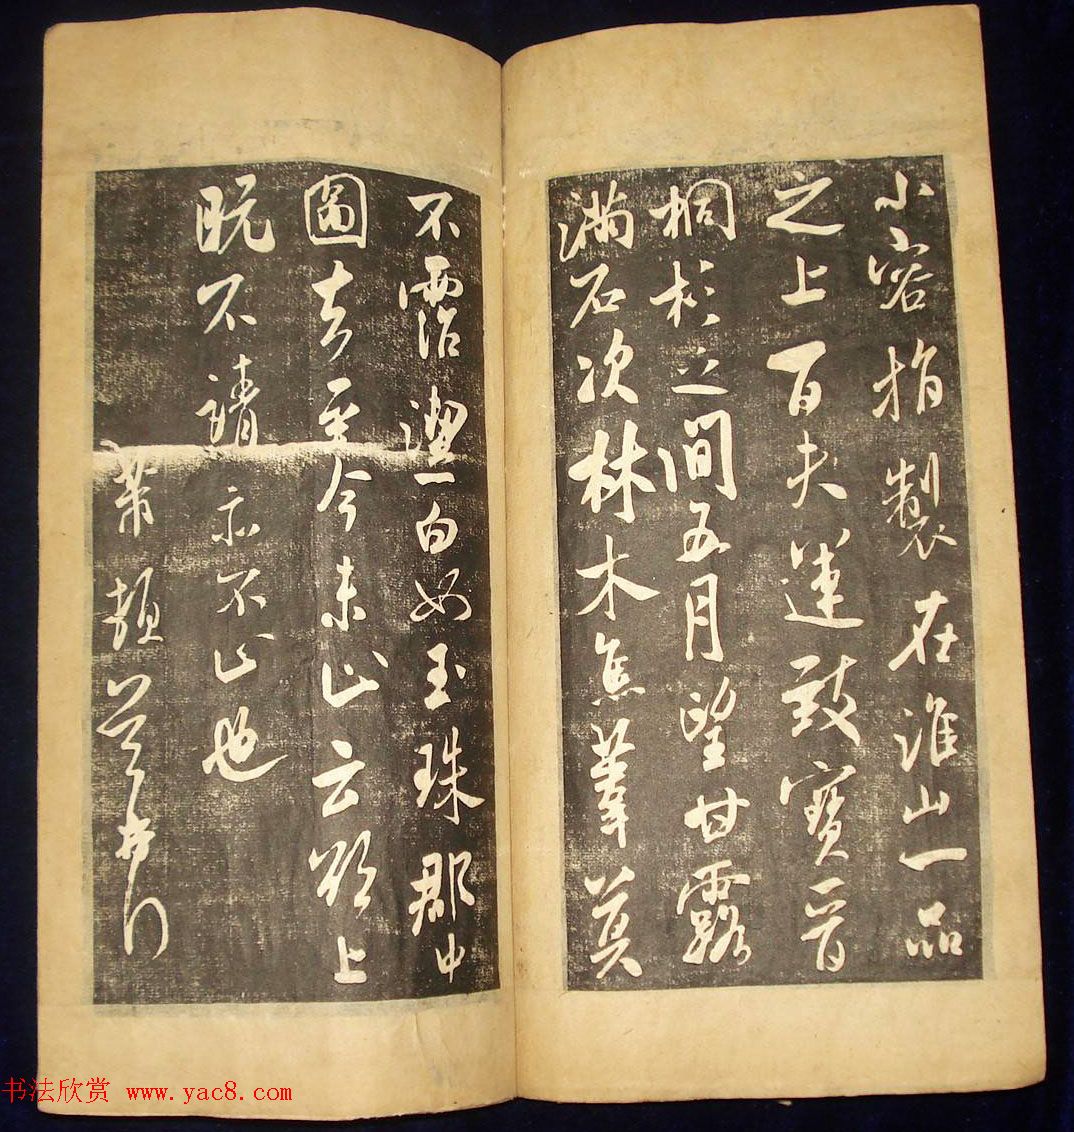 小容製在淮山一品
之上百夫運致寶晉
桐杉之間五月望甘露
滿石次林木焦葦莫
不霑潔白如玉珠郡中
圖去至今未止云欲上
既不請亦不止也
芾頓首
书法欣赏 www.yac8.com